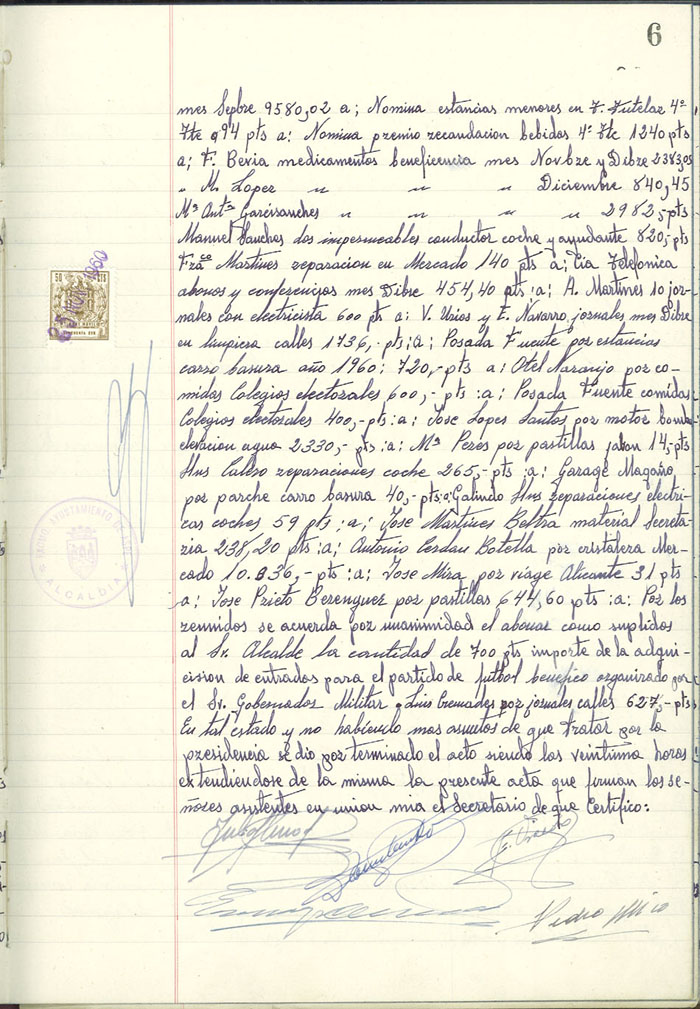 6
mes Sepbre 9580,02 a; Nomina estancias menores en T. Tutelar 4º
Tte 994 pts a: Nomina premio recaudacion bebidas 4º Tte 1240 pts
a; F. Bevia medicamentos beneficencia mes Novbre y Dibre 2383,05
" M. Lopez " " " Diciembre 840,45
Mª Antª Garcisanches " " " " 2982,- pts
Manuel Sanches dos impermeables conductor coche y ayudante 820,- pts
Frᶜᵒ Martines reparacion en Mercado 140 pts a; Cia Telefonica
abonos y conferencias mes Dibre 454,40 pts :a; A. Martines 10 jor-
nales con electricista 600 pts a: V. Urios y E. Navarro, jornales mes Dibre
en limpieza calles 1736,- pts ;a; Posada Fuente por estancias
carro basura año 1960: 720,- pts a; Otel Naranjo por co-
midas Colegios electorales 600,- pts :a; Posada Fuente comidas
Colegios electorales 400,- pts :a; Jose Lopes Santos por motor bomba
elevacion agua 2330,- pts :a; Mª Peres por pastillas jabon 14,- pts
Hns Calero reparaciones coche 265,- pts :a; Garage Magaño,
por parche carro basura 40,- pts :a; Galindo Hns reparaciones electri-
cas coches 59 pts :a; Jose Martines Beltra material Secreta-
ria 238,20 pts :a; Antonio Cerdan Botella por cristalera Mer-
cado 10.836,- pts :a; Jose Mira por viage Alicante 31 pts
a; Jose Prieto Berenguer por pastillas 644,60 pts :a: Por los
reunidos se acuerda por unanimidad el abonar como suplidos
al Sr. Alcalde la cantidad de 700 pts importe de la adqui-
cision de entradas para el partido de futbol benefico organizado por
el Sr. Gobernador Militar. Luis Cremades por jornales calles 627,- pts
En tal estado y no habiendo mas asuntos de que tratar por la
presidencia se dio por terminado el acto siendo las veintiuna horas
extendiendose de la misma la presente acta que firman los se-
ñores asistentes en union mia el Secretario de que Certifico:
Pedro Mico
50 CTS
1960
AYUNTAMIENTO DE
ALCALDIA